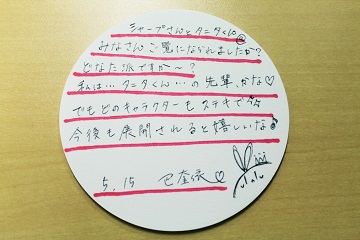 シャープさんとタニタくん@
みなさんご覧になられましたか?
どなた派ですか〜?
私は…タニタくん…の先輩、かな♡
でもどのキャラクターもステキで
今後も展開されると嬉しいな♪
5.15 巴奎依♡